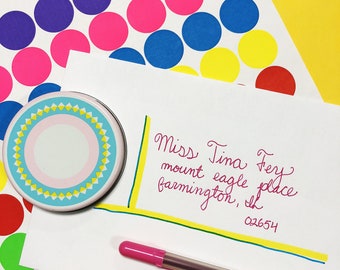 Miss Tina Fey
mount eagle place
farmington, ih
02654